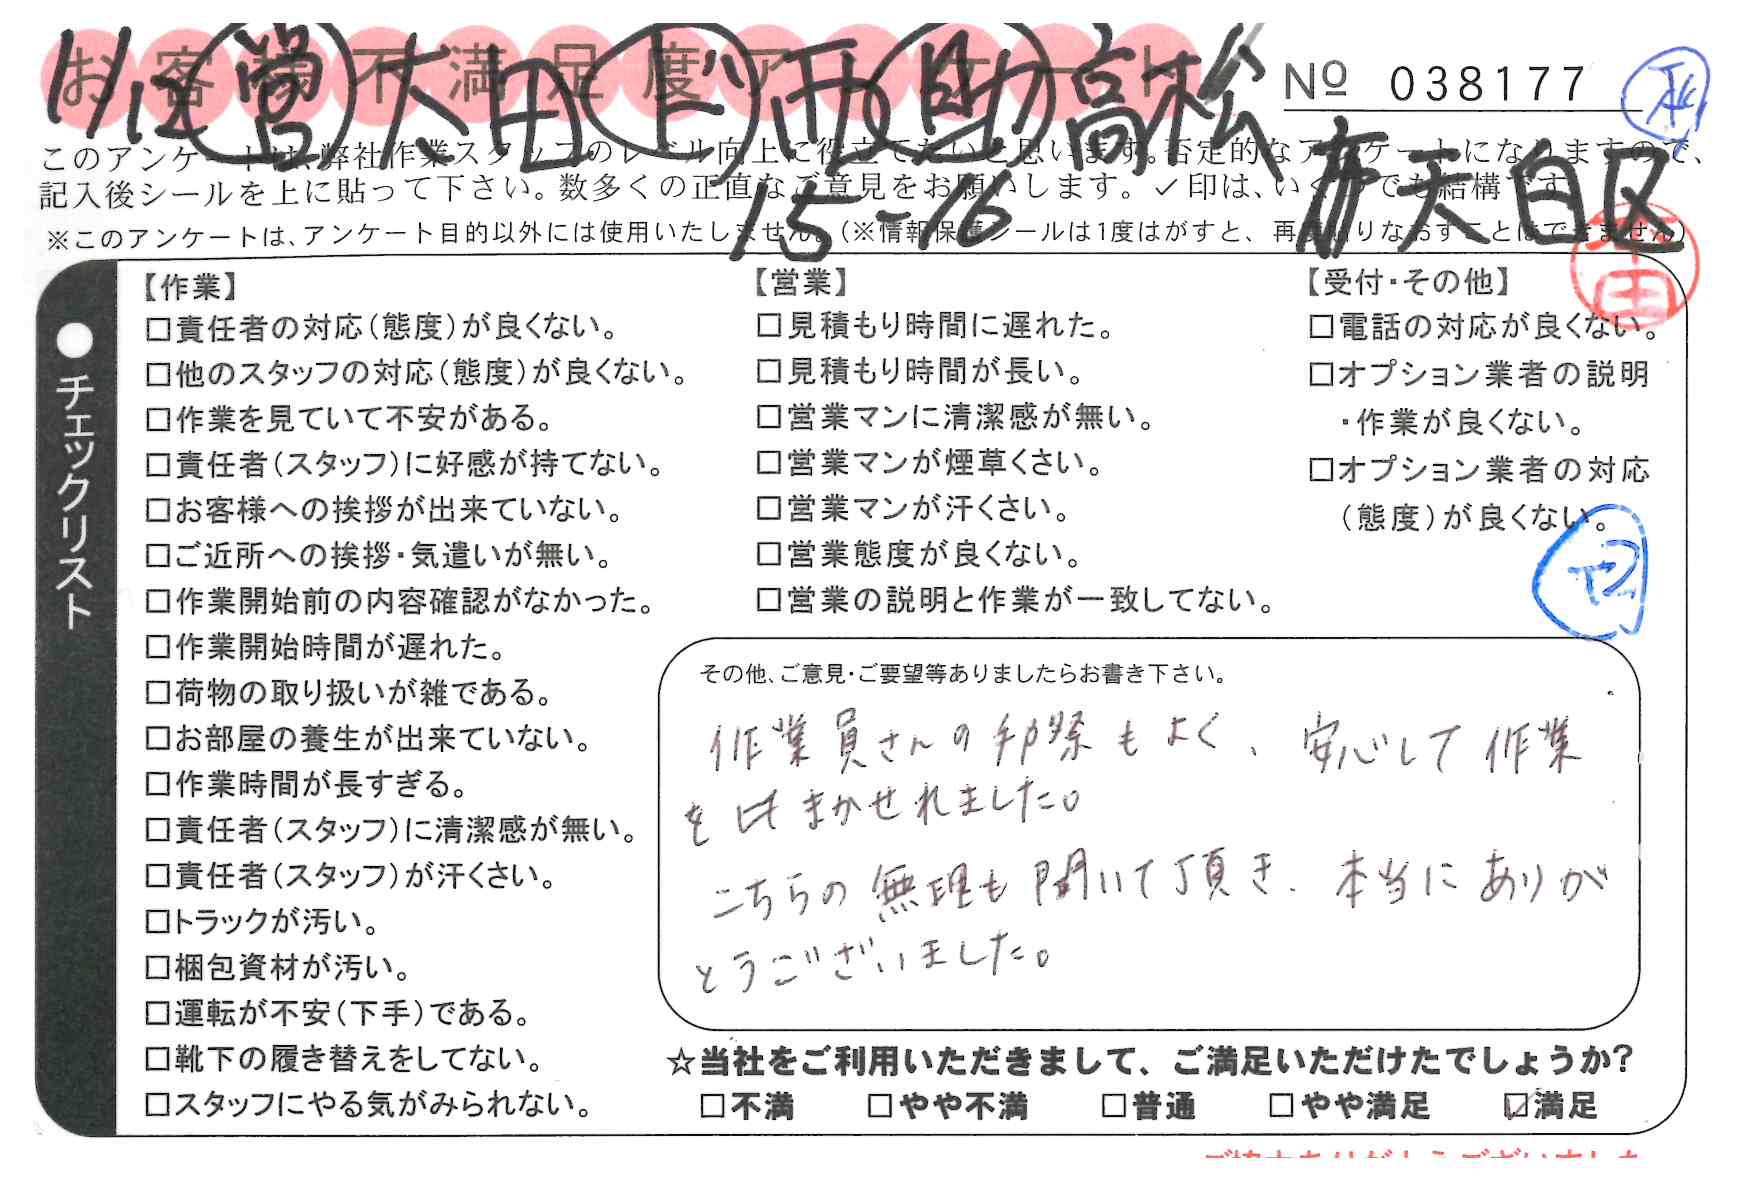 お客様不満足度アンケート
11/12 営 太田 ド 西 助 高松
No 038177
このアンケートは、弊社作業スタッフのレベル向上に役立てたいと思います。否定的なアンケートになりますので、
記入後シールを上に貼って下さい。数多くの正直なご意見をお願いします。✓印は、いくつでも結構です。
15-16 天白区
※このアンケートは、アンケート目的以外には使用いたしません。(※情報保護シールは1度はがすと、再度貼りなおすことはできません)
●チェックリスト
【作業】
□責任者の対応(態度)が良くない。
□他のスタッフの対応(態度)が良くない。
□作業を見ていて不安がある。
□責任者(スタッフ)に好感が持てない。
□お客様への挨拶が出来ていない。
□ご近所への挨拶・気遣いが無い。
□作業開始前の内容確認がなかった。
□作業開始時間が遅れた。
□荷物の取り扱いが雑である。
□お部屋の養生が出来ていない。
□作業時間が長すぎる。
□責任者(スタッフ)に清潔感が無い。
□責任者(スタッフ)が汗くさい。
□トラックが汚い。
□梱包資材が汚い。
□運転が不安(下手)である。
□靴下の履き替えをしてない。
□スタッフにやる気がみられない。
【営業】
□見積もり時間に遅れた。
□見積もり時間が長い。
□営業マンに清潔感が無い。
□営業マンが煙草くさい。
□営業マンが汗くさい。
□営業態度が良くない。
□営業の説明と作業が一致してない。
【受付・その他】
□電話の対応が良くない。
□オプション業者の説明
・作業が良くない。
□オプション業者の対応
(態度)が良くない。
その他、ご意見・ご要望等ありましたらお書き下さい。
作業員さんの手際もよく、安心して作業
をおまかせれました。
こちらの無理も聞いて頂き、本当にありが
とうございました。
☆当社をご利用いただきまして、ご満足いただけたでしょうか?
□不満 □やや不満 □普通 □やや満足 ☑満足
ご協力ありがとうございました